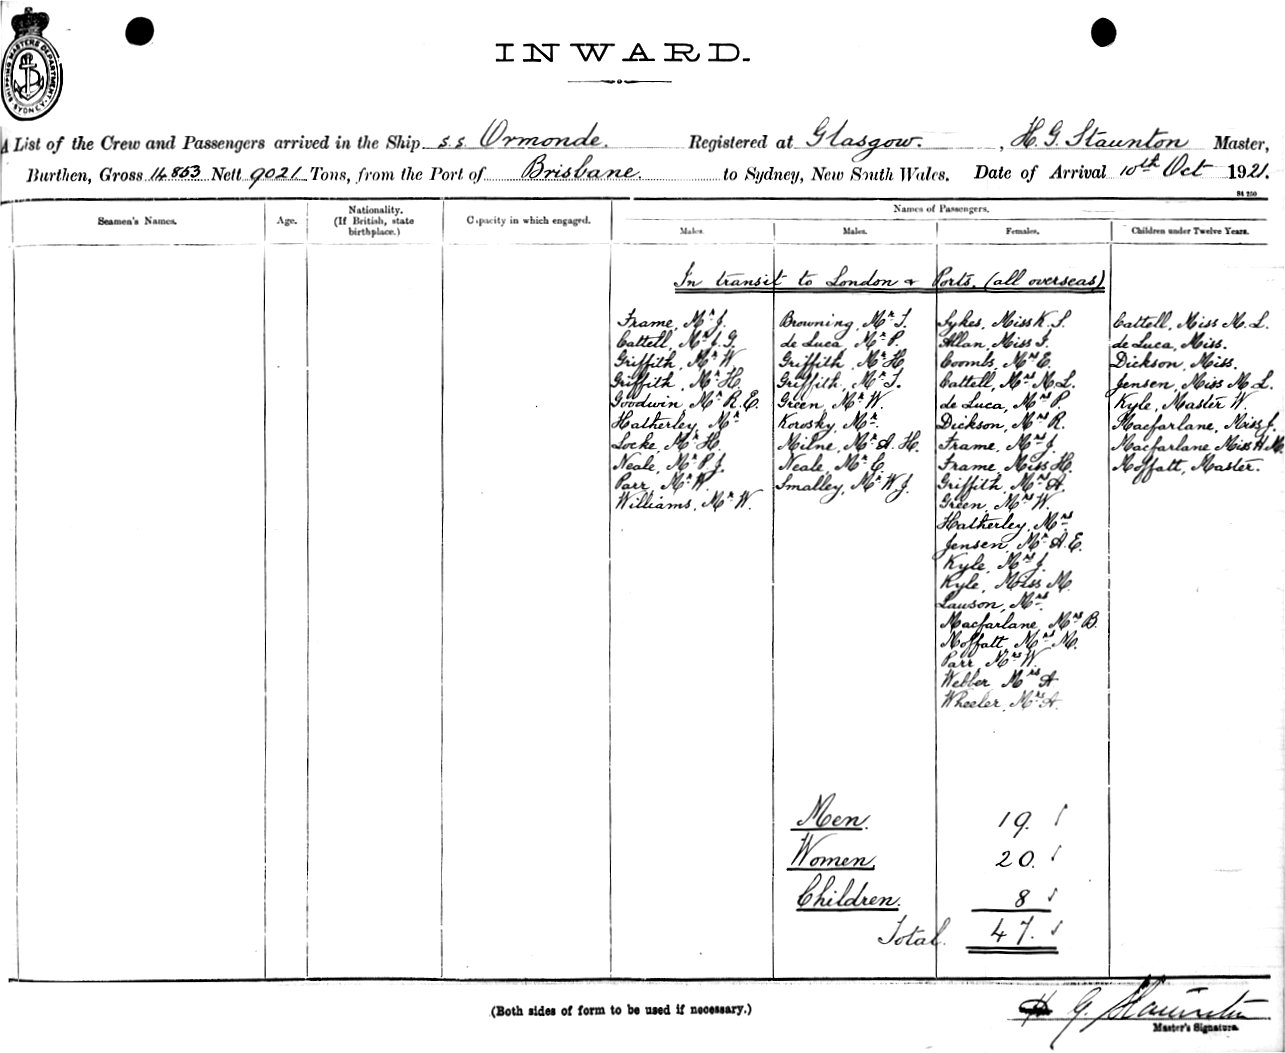 SHIPPING MASTERS DEPARTMENT
SYDNEY
INWARD.
A List of the Crew and Passengers arrived in the Ship s.s. Ormonde. Registered at Glasgow. , H. G. Staunton Master,
Burthen, Gross 14853 Nett 9021 Tons, from the Port of Brisbane. to Sydney, New South Wales. Date of Arrival 10th Oct 1921.
84 250
Seamen's Names.
Age.
Nationality.
(If British, state
birthplace.)
Capacity in which engaged.
Names of Passengers.
Males.
Males.
Females.
Children under Twelve Years.
In transit to London & Ports. (all overseas)
Frame, Mr J.
Cattell, Mr J. G.
Griffith, Mr W.
Griffith, Mr H.
Goodwin, Mr R. E.
Hatherley, Mr
Locke, Mr H.
Neale, Mr P. J.
Parr, Mr W.
Williams, Mr W.
Browning, Mr T.
de Luca, Mr P.
Griffith, Mr H.
Griffith, Mr T.
Green, Mr W.
Korosky, Mr.
Milne, Mr A. H.
Neale, Mr C.
Smalley, Mr W. J.
Sykes, Miss K. S.
Allan, Miss I.
Coombs, Mrs E.
Cattell, Mrs M. L.
de Luca, Mrs P.
Dickson, Mrs R.
Frame, Mrs J.
Frame, Miss H.
Griffith, Mrs A.
Green, Mrs W.
Hatherley, Mrs
Jensen, Mrs A. E.
Kyle, Mrs J.
Kyle, Miss M.
Lawson, Mrs.
Macfarlane, Mrs B.
Moffatt, Mrs M.
Parr, Mrs W.
Webber, Mrs A
Wheeler, Mrs A.
Cattell, Miss M. L.
de Luca, Miss.
Dickson, Miss.
Jensen, Miss M. L.
Kyle, Master W.
Macfarlane, Miss J.
Macfarlane Miss H. M.
Moffatt, Master.
Men. 19.
Women. 20.
Children. 8
Total. 47.
(Both sides of form to be used if necessary.)
H G. Staunton
Master's Signature.